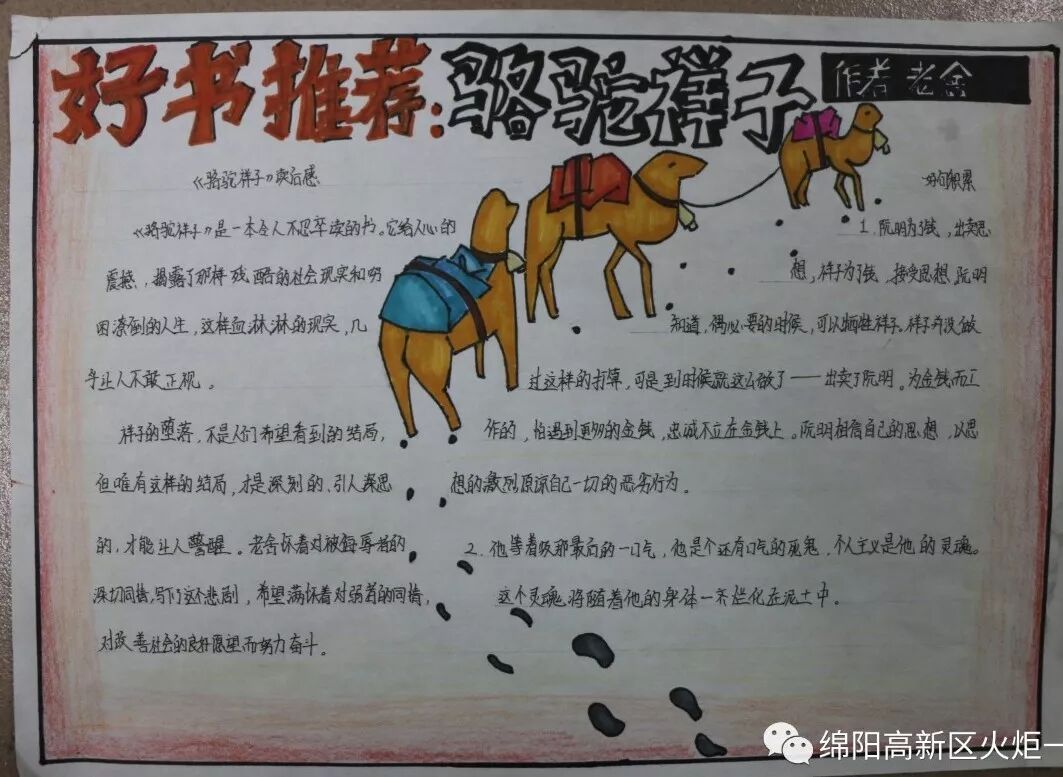 好书推荐：骆驼祥子
作者 老舍
《骆驼祥子》读后感
《骆驼祥子》是一本令人不忍卒读的书。它给人心的
震撼，揭露了那样残酷的社会现实和穷
困潦倒的人生，这样血淋淋的现实，几
乎让人不敢正视。
祥子的堕落，不是人们希望看到的结局，
但唯有这样的结局，才是深刻的、引人深思
的，才能让人警醒。老舍怀着对被侮辱者的
深切同情，写下了这个悲剧，希望满怀着对弱者的同情，
对改善社会的良好愿望而努力奋斗。
好句积累
1. 阮明为了钱，出卖思
想，祥子为了钱，接受思想，阮明
知道，偶必要的时候，可以牺牲祥子。祥子并没做
过这样的打算，可是到时候就这么做了——出卖了阮明。为金钱而工
作的，怕遇到更多的金钱，忠诚不立在金钱上。阮明相信自己的思想，以思
想的激烈原谅自己一切的恶劣行为。
2. 他等着吸那最后的一口气，他是个还有口气的死鬼，个人主义是他的灵魂。
这个灵魂将随着他的身体一齐烂化在泥土中。
绵阳高新区火炬一